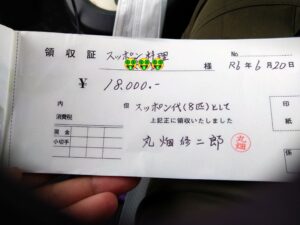 領収証 スッポン料理 様 No. R6年6月20日
¥ 18,000.-
内 但 スッポン代(8匹)として
消費税 上記正に領収いたしました
現金
小切手
丸畑修二郎 丸畑
印紙